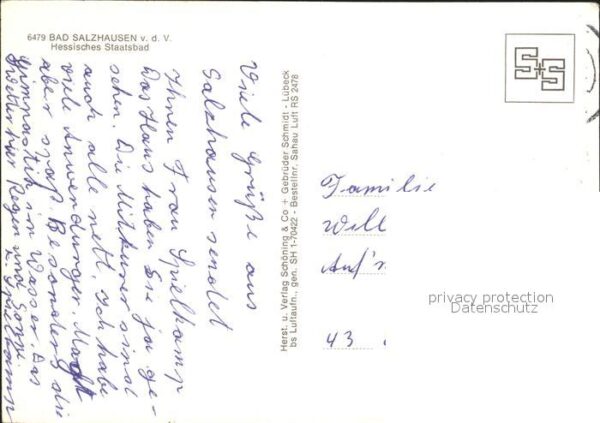 6479 BAD SALZHAUSEN v. d. V.
Hessisches Staatsbad
Viele Grüße aus
Salzhausen sendet
Ihnen Frau Spielkamp
Das Haus haben Sie ja ge-
sehen. Die Mitkurer sind
auch alle nett. Ich habe
viele Anwendungen. Macht
aber spaß. Besonders die
Gimnastik im Wasser. Das
Wetter hier Regen und Sonne.
Spielkamp
Herst. u. Verlag Schöning & Co + Gebrüder Schmidt - Lübeck
bs Luftaufn., gen. SH 1-70422 - Bestellnr. Sahau Luft RS 2478
Familie
Well
Auf'r
43
privacy protection
Datenschutz